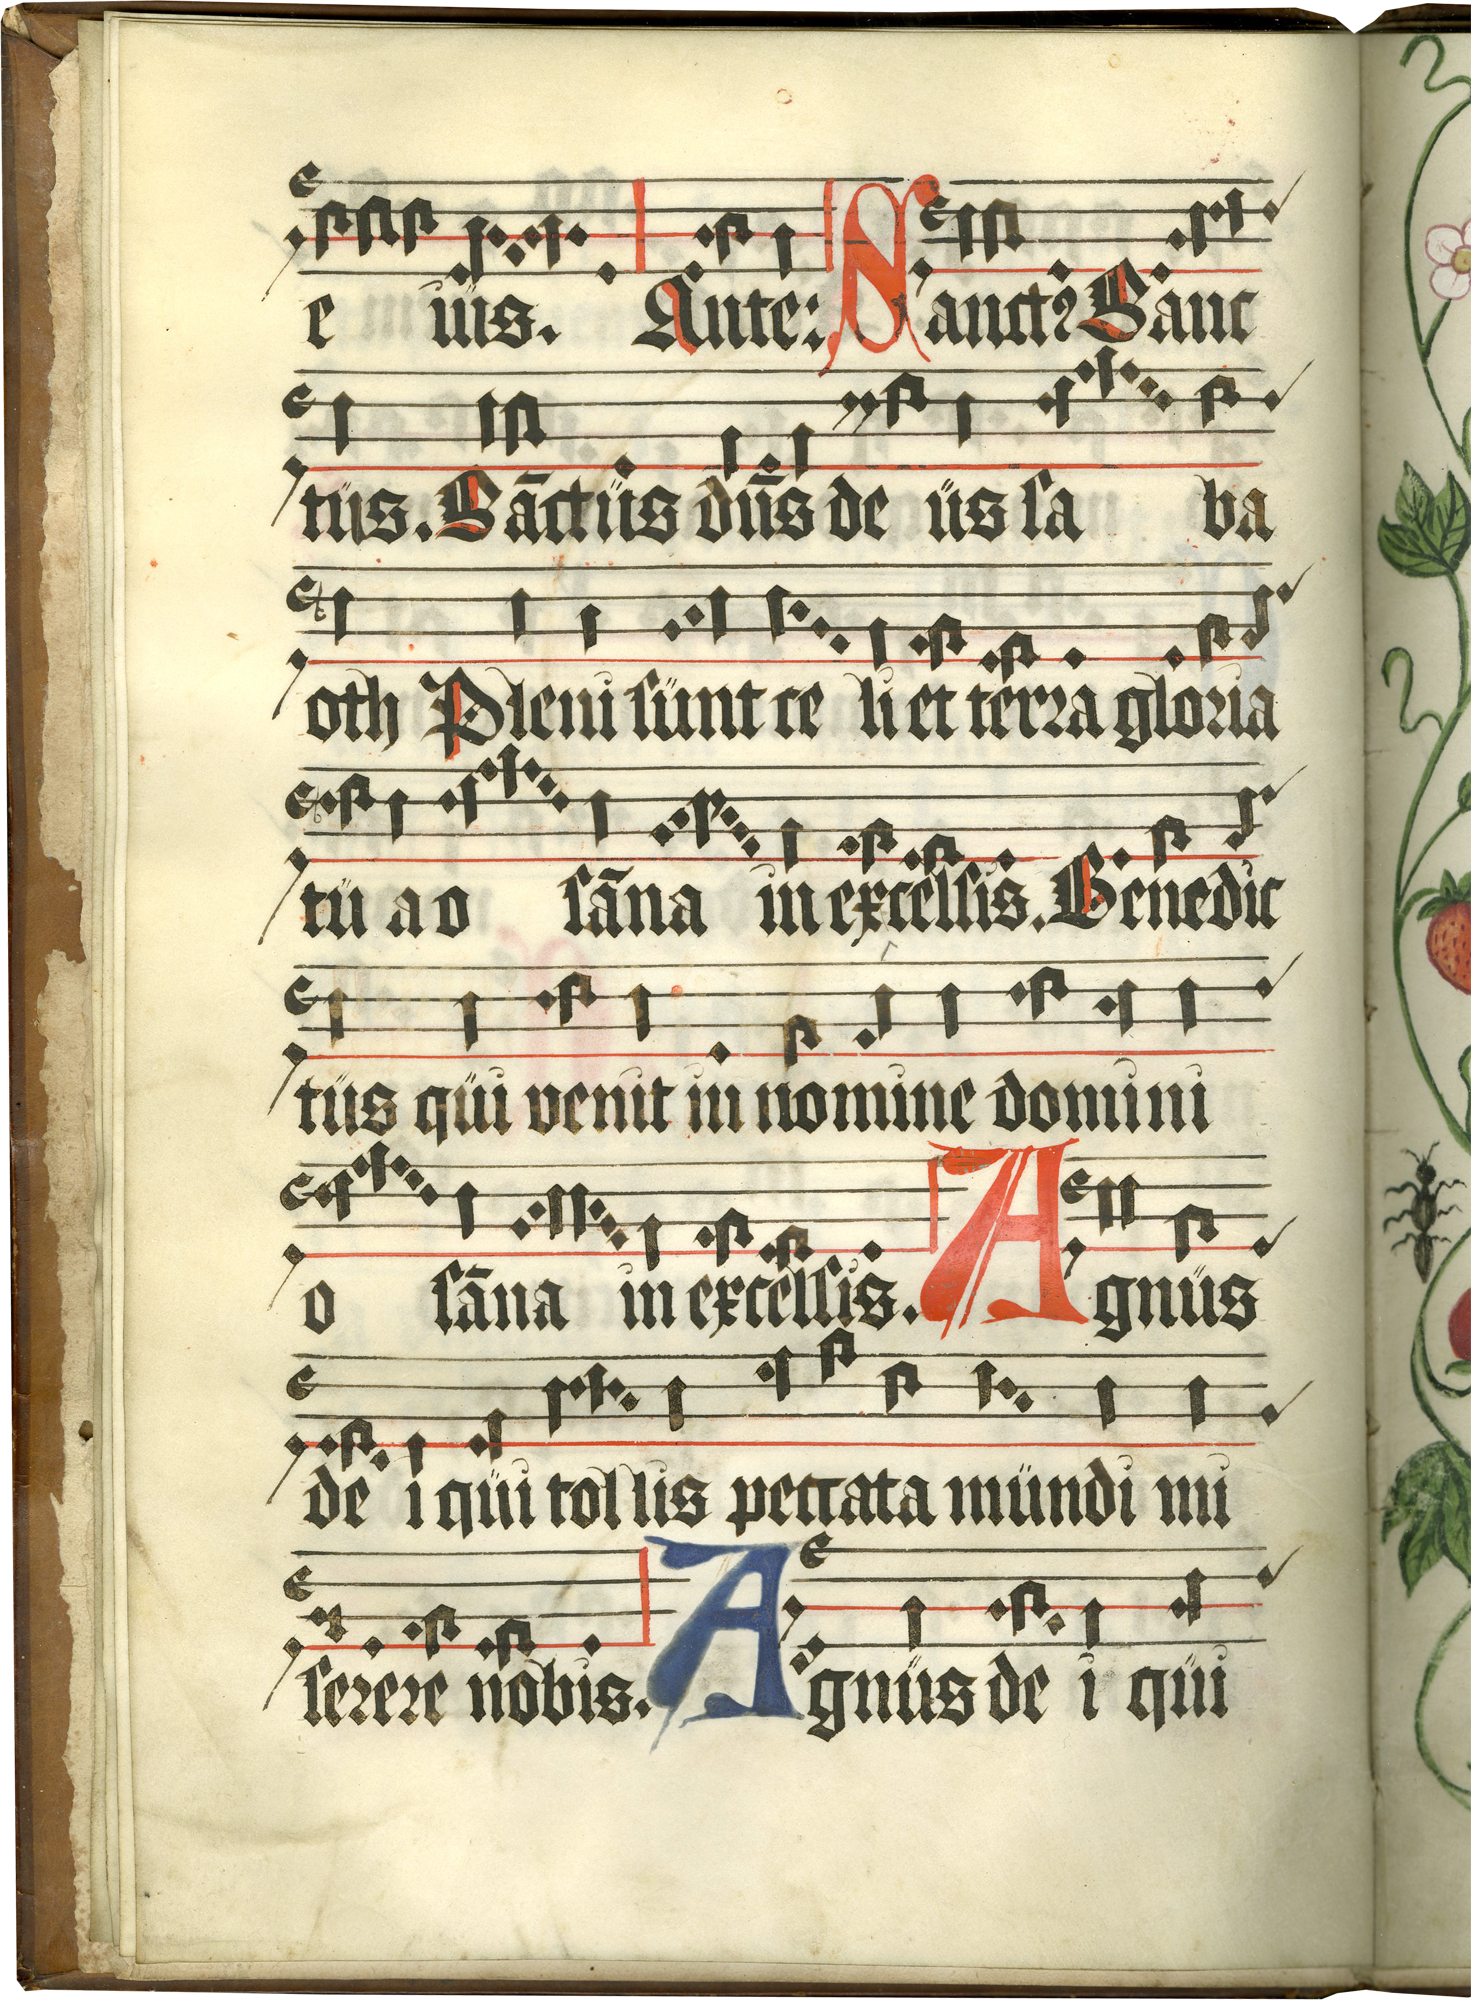 e iüs. Ante: Sanctꝰ Sanc
tüs. Sāctüs dn̄s de üs sa ba
oth Pleni sünt ce li et terra gloria
tü a o sāna in excelsis. Benedic
tüs qüi venit in nomine domini
o sāna in excelsis. Agnüs
de i qüi tollis peccata mündi mi
serere nobis. Agnüs de i qüi